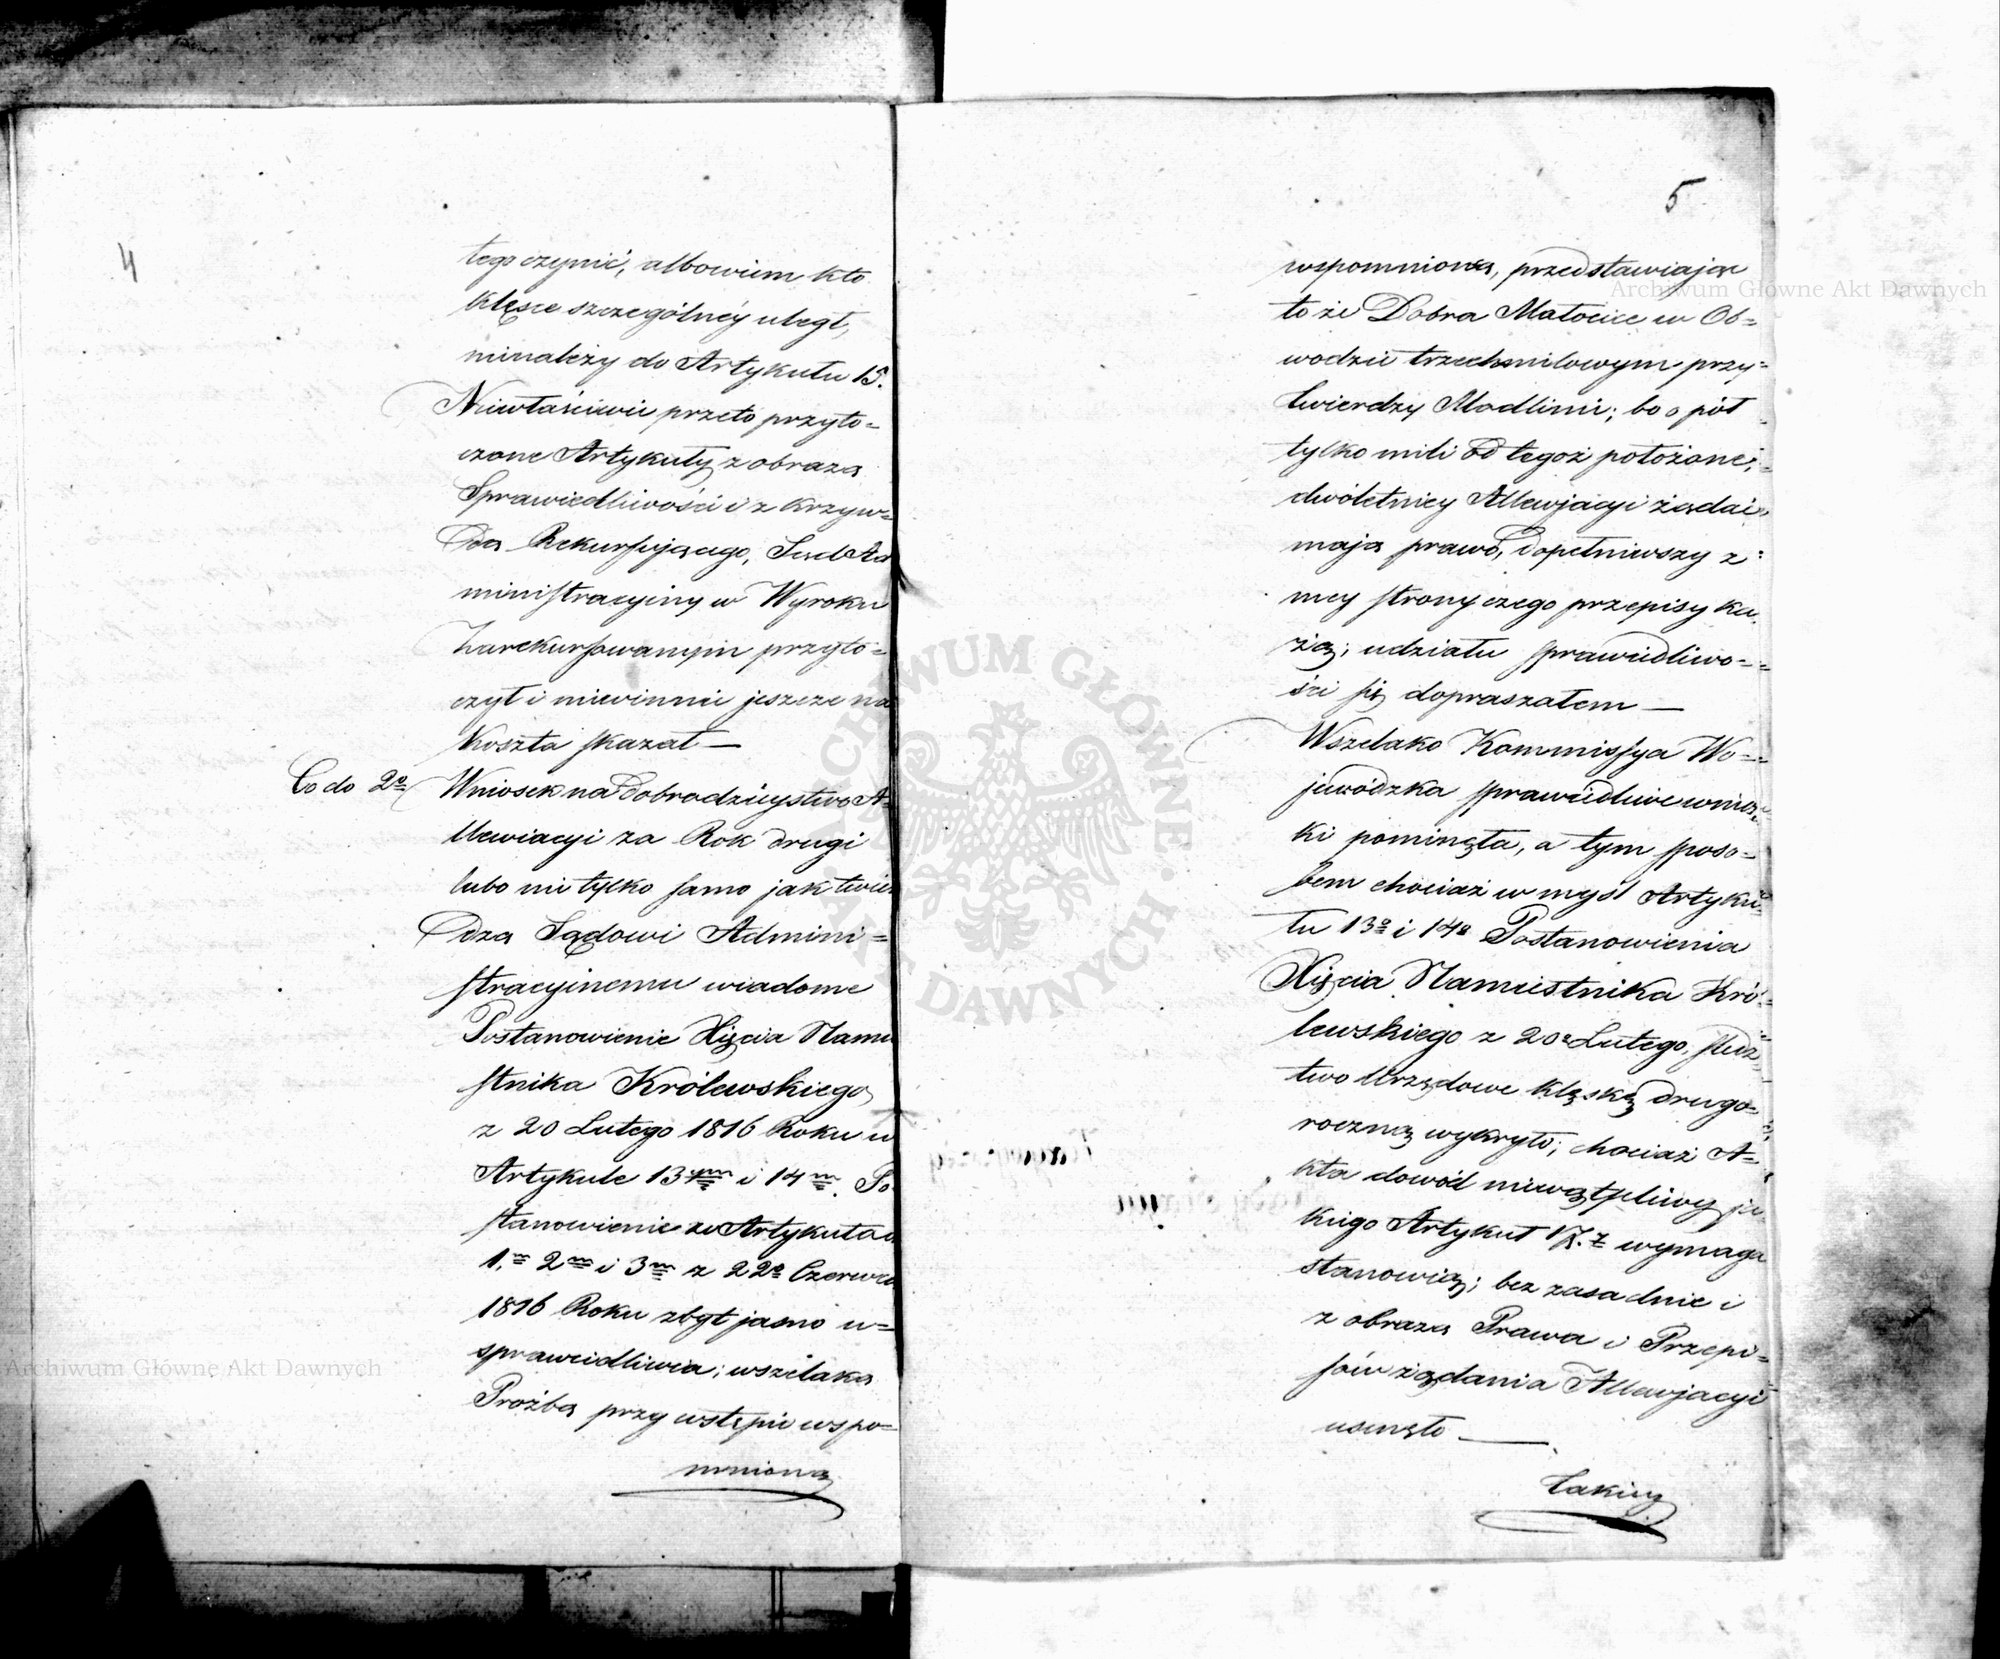 4
tego czynić, albowiem kto
klęsce szczególnéy uległ,
nienależy do Artykułu 15.
Niewłaściwie przeto przyto=
czone Artykuły z obrazą
Sprawiedliwości i z krzyw=
dą Rekursującego, Sąd Ad
ministracyiny w Wyroku
zarekursowanym przyto=
czył i niewinnie jeszcze na
Koszta skazał —
Co do 2º Wniosek na Dobrodzieystwo A=
llewiacyi za Rok drugi
lubo nie tylko samo jak twier
dzą Sądowi Admini=
stracyinemu wiadome
Postanowienie Xięcia Namie
stnika Królewskiego
z 20 Lutego 1816 Roku w
Artykule 13ym i 14m. Po
stanowienie w Artykułach
1.m 2m i 3m z 22º Czerwca
1816 Roku zbyt jasno u=
sprawiedliwia; wszelako
Prożbą przy wstępie wspo=
mnioną
5
wspomnioną, przedstawiając
to że Dobra Małocice w Ob=
wodzie trzechmilowym przy=
twierdzy Modlinie; bo o pół
tylko mili od tegoż położone;
dwóletniey Allewjacyi żądać
mają prawo, dopełniwszy z=
mey strony czego przepisy ka
żą; udziału sprawiedliwo=
ści się dopraszałem —
Wszelako Kommissya Wo=
jewódzka sprawiedliwe wnios
ki pominęła, a tym sposo=
bem chociaż w myśl Artyku=
łu 13º i 14º Postanowienia
Xięcia Namiestnika Kró=
lewskiego z 20º Lutego, śledz
two Urzędowe klęskę drugo=
roczną wykryło; chociaż A=
kta dowód niewątpliwy ja
kiego Artykuł wymaga
stanowią; bez zasadnie i
z obrazą Prawa i Przepi=
sów żądania Allewjacyi
usunęło —
Takiey
Archiwum Główne Akt Dawnych
Archiwum Główne Akt Dawnych
ARCHIWUM GŁÓWNE AKT DAWNYCH